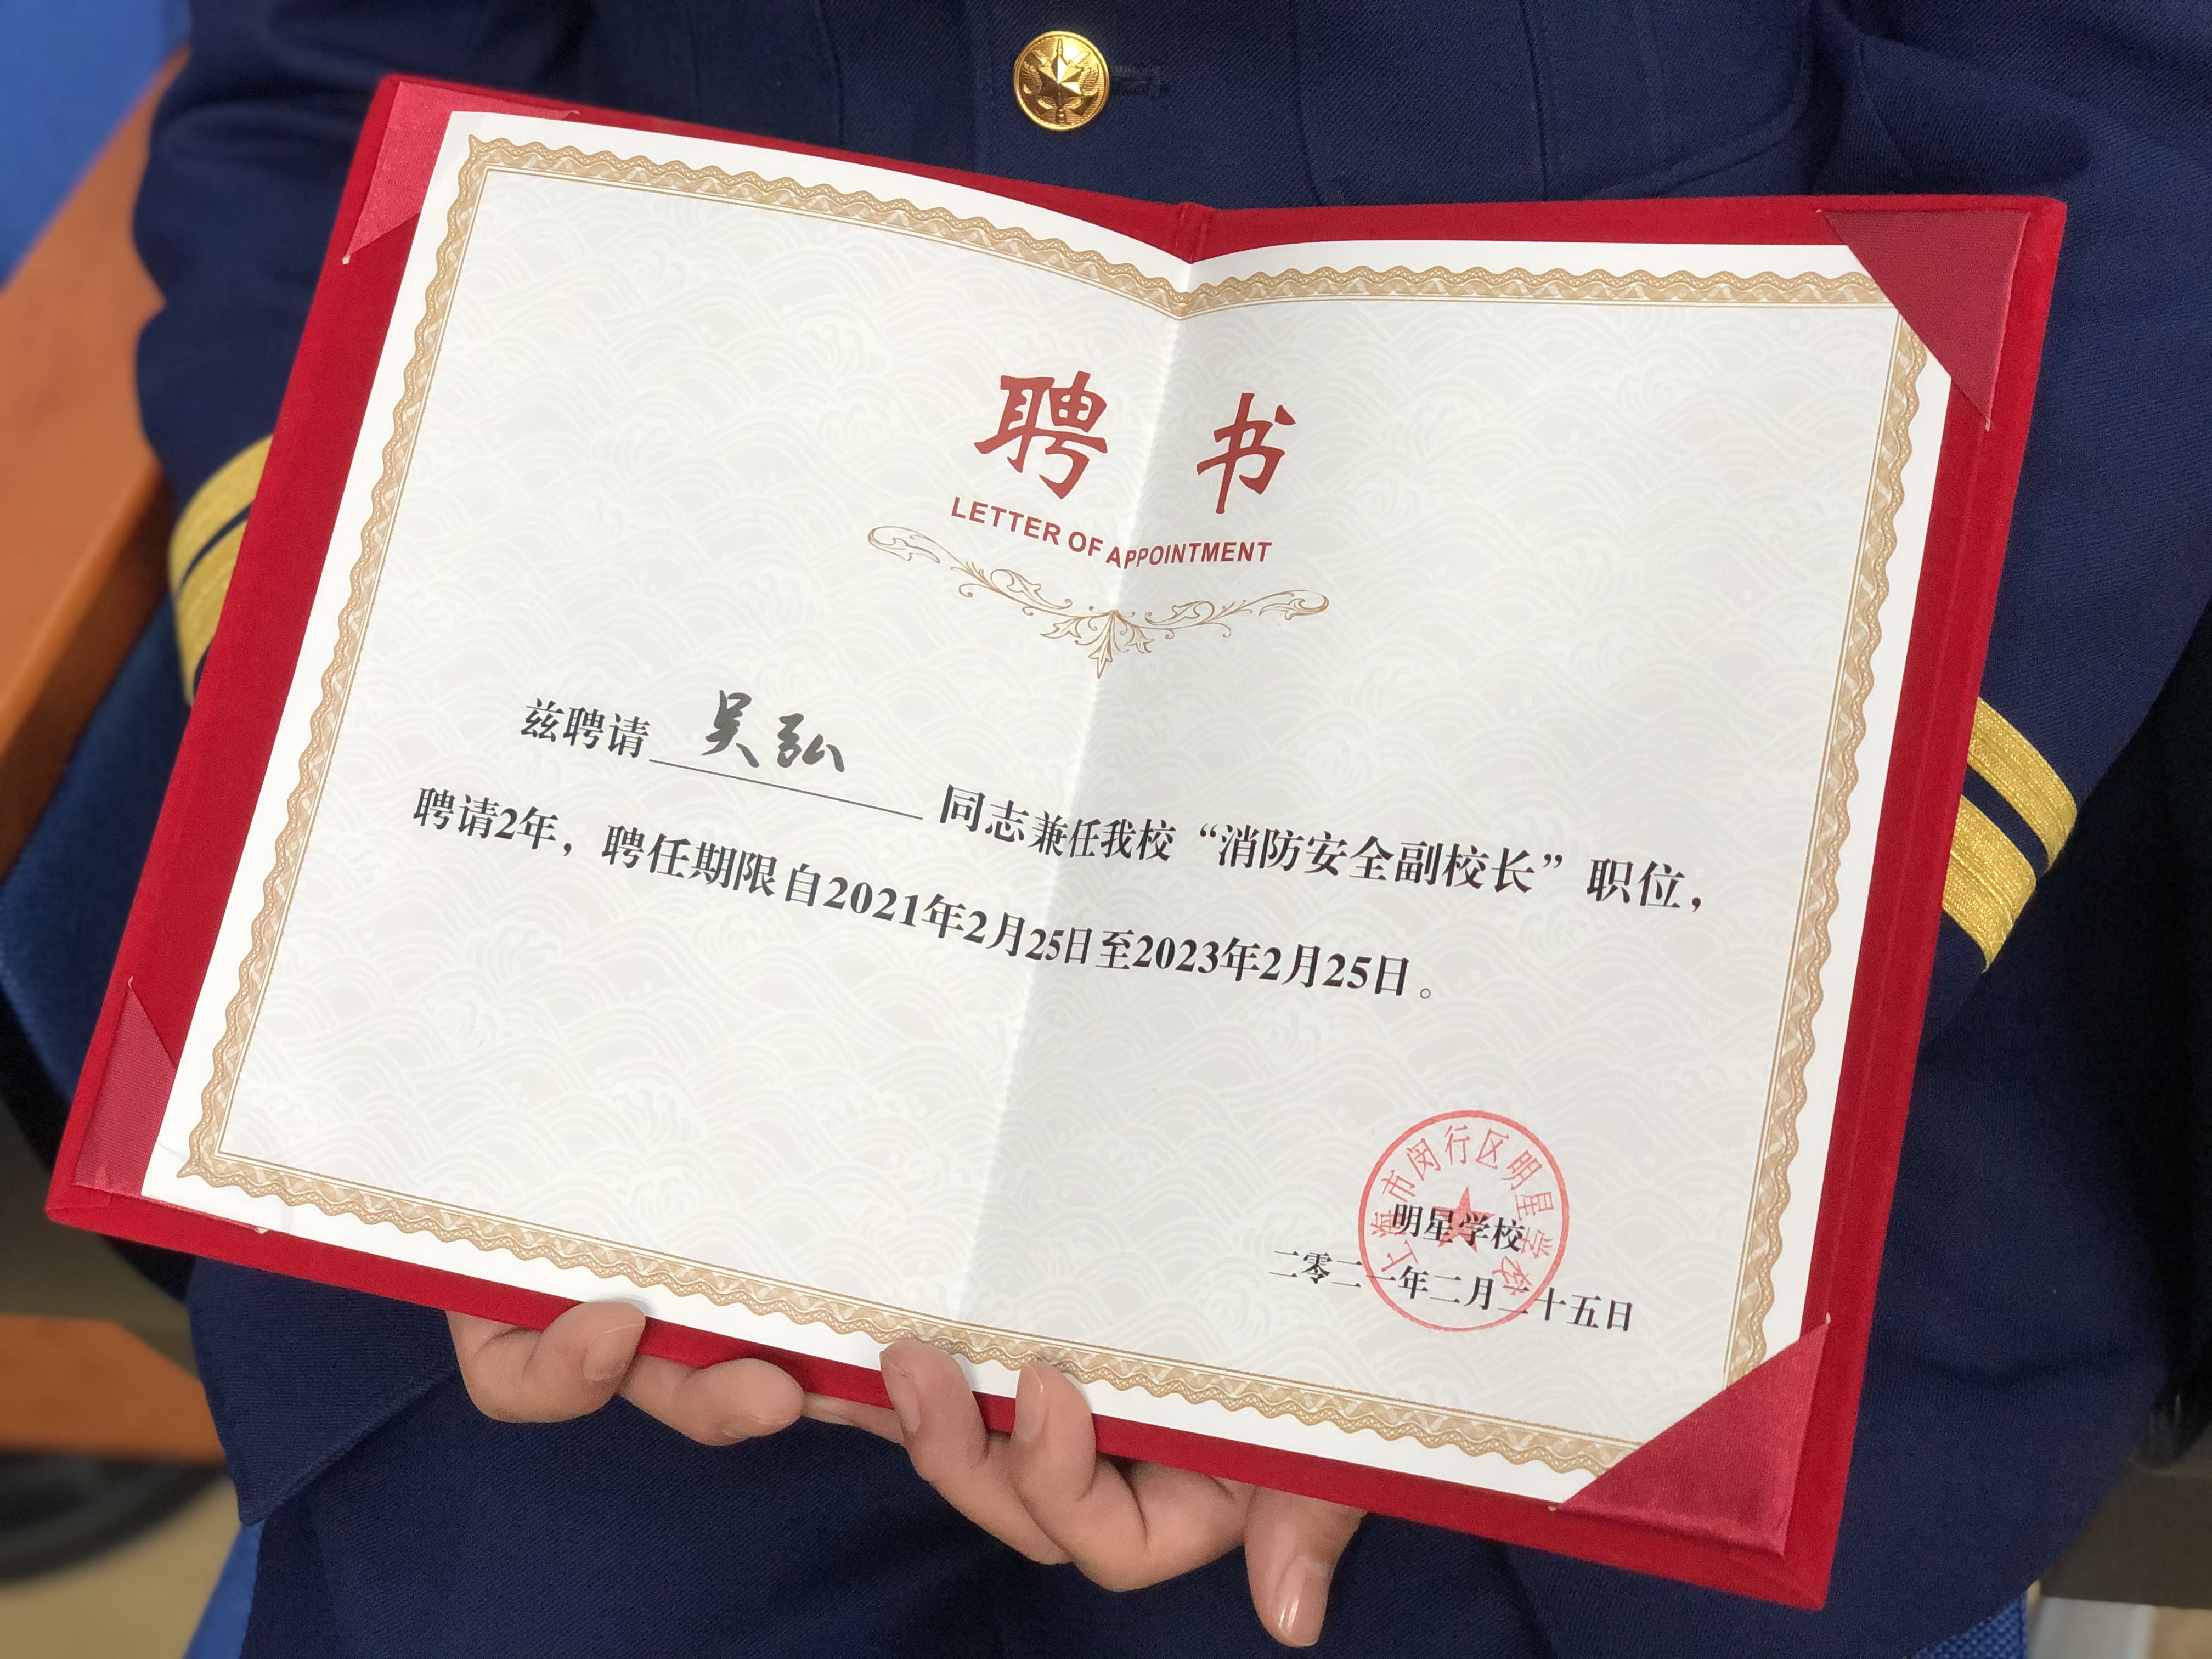 聘 书
LETTER OF APPOINTMENT
兹聘请 吴弘 同志兼任我校“消防安全副校长”职位，
聘请2年，聘任期限自2021年2月25日至2023年2月25日。
上海市闵行区明星学校
明星学校
二零二一年二月二十五日